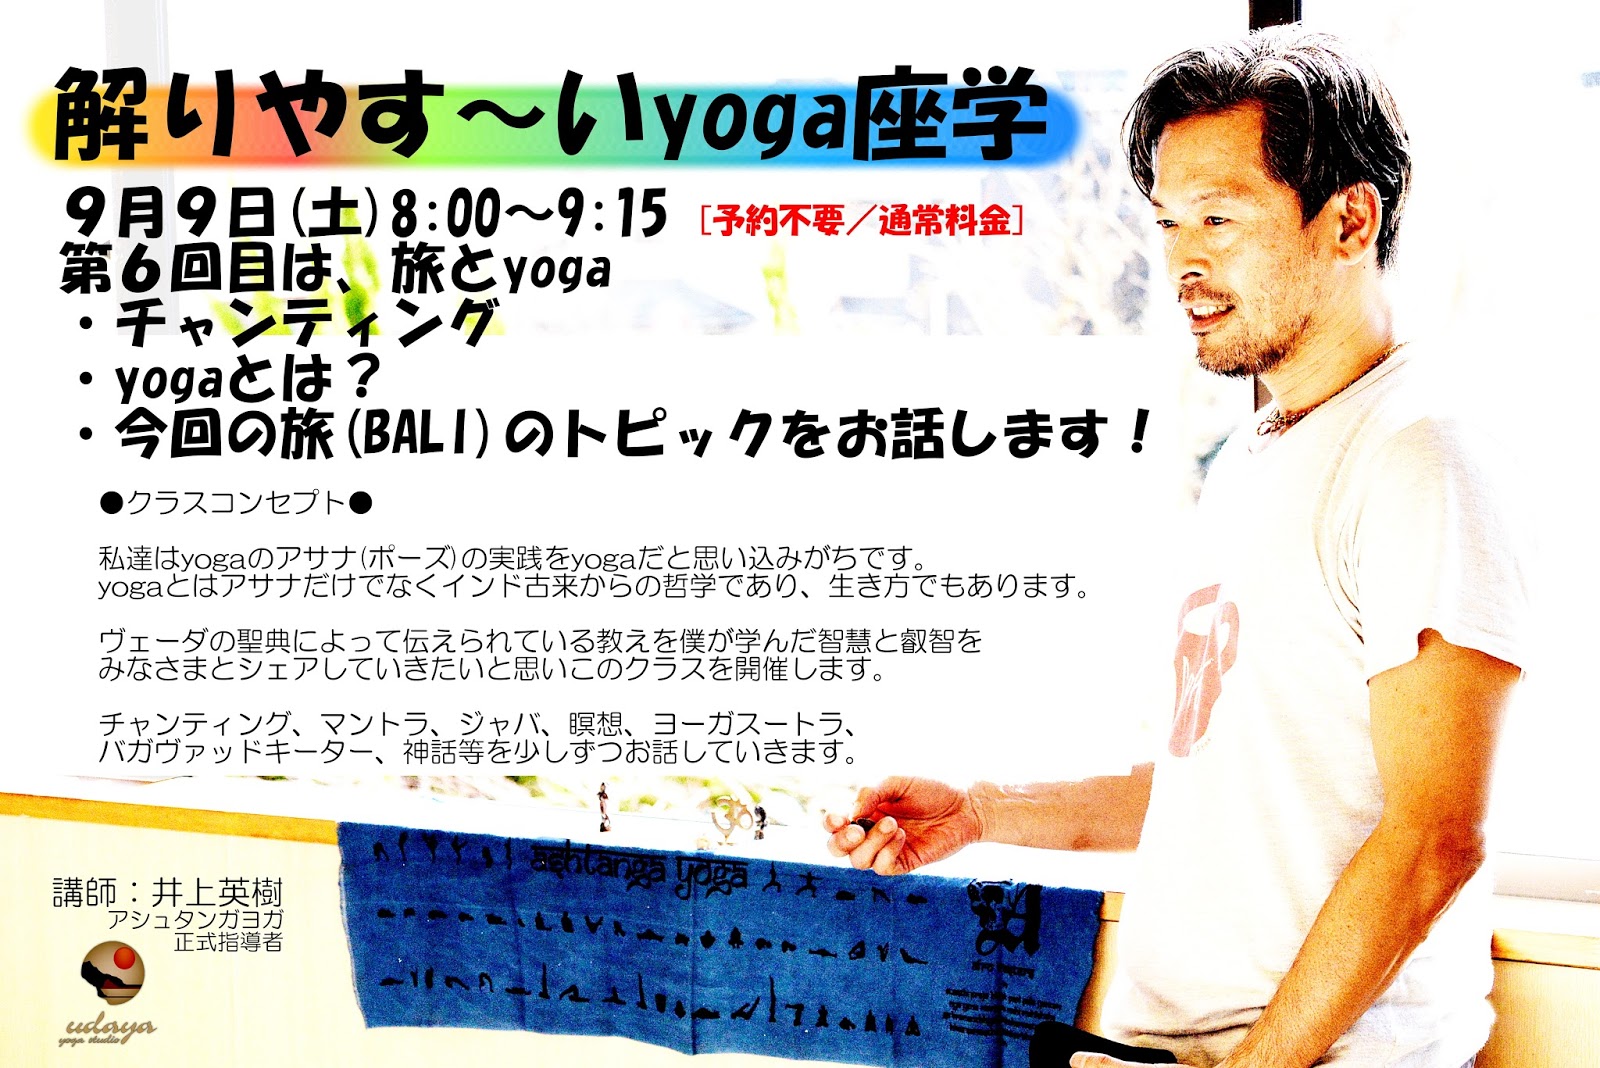 解りやす～いyoga座学
９月９日(土)8:00～9:15 [予約不要／通常料金]
第６回目は、旅とyoga
・チャンティング
・yogaとは？
・今回の旅(BALI)のトピックをお話します！
●クラスコンセプト●
私達はyogaのアサナ(ポーズ)の実践をyogaだと思い込みがちです。
yogaとはアサナだけでなくインド古来からの哲学であり、生き方でもあります。
ヴェーダの聖典によって伝えられている教えを僕が学んだ智慧と叡智を
みなさまとシェアしていきたいと思いこのクラスを開催します。
チャンティング、マントラ、ジャバ、瞑想、ヨーガスートラ、
バガヴァッドキーター、神話等を少しずつお話していきます。
ashtanga yoga
講師：井上英樹
アシュタンガヨガ
正式指導者
udaya
yoga studio